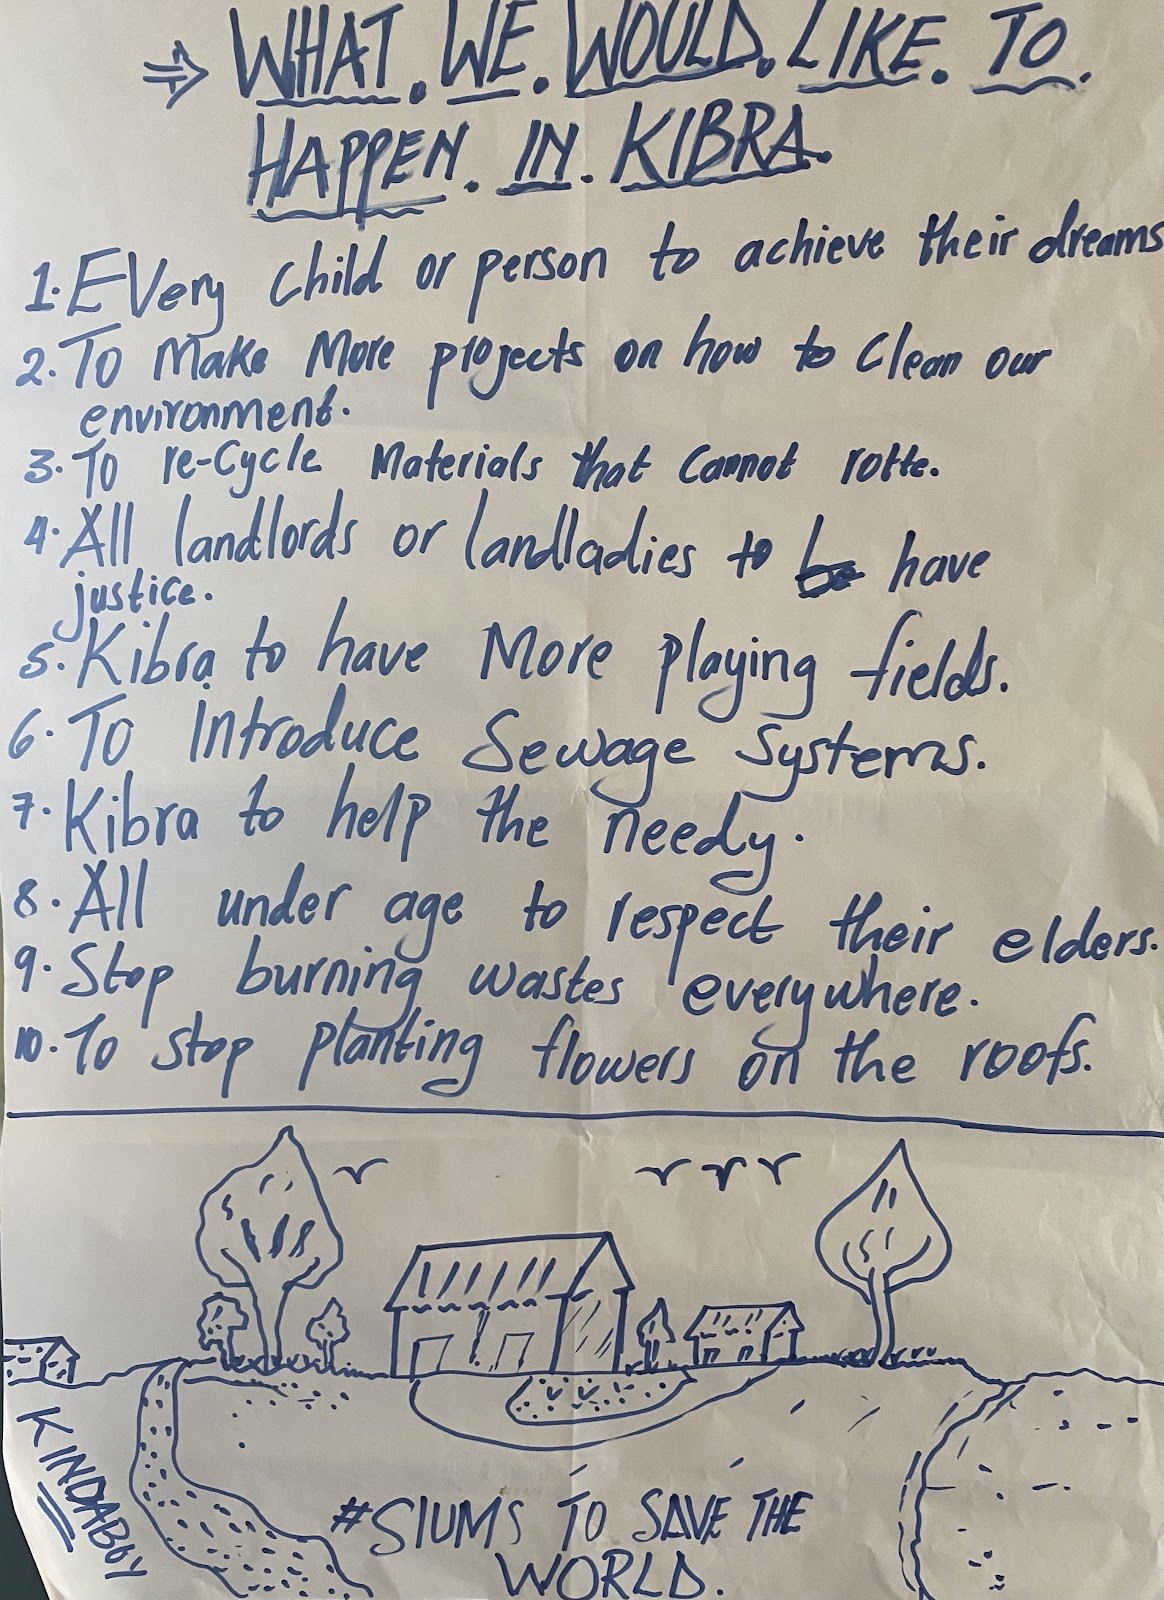 ⇒ WHAT. WE. WOULD. LIKE. TO.
HAPPEN. IN. KIBRA.
1. EVery child or person to achieve their dreams
2. To Make More projects on how to Clean our
environment.
3. To re-Cycle Materials that Cannot rotte.
4. All landlords or landladies to be have
justice.
5. Kibra to have More playing fields.
6. To Introduce Sewage Systems.
7. Kibra to help the needy.
8. All under age to respect their elders.
9. Stop burning wastes everywhere.
10. To stop planting flowers on the roofs.
KINDABOY
#SlUMS TO SAVE THE
WORLD.